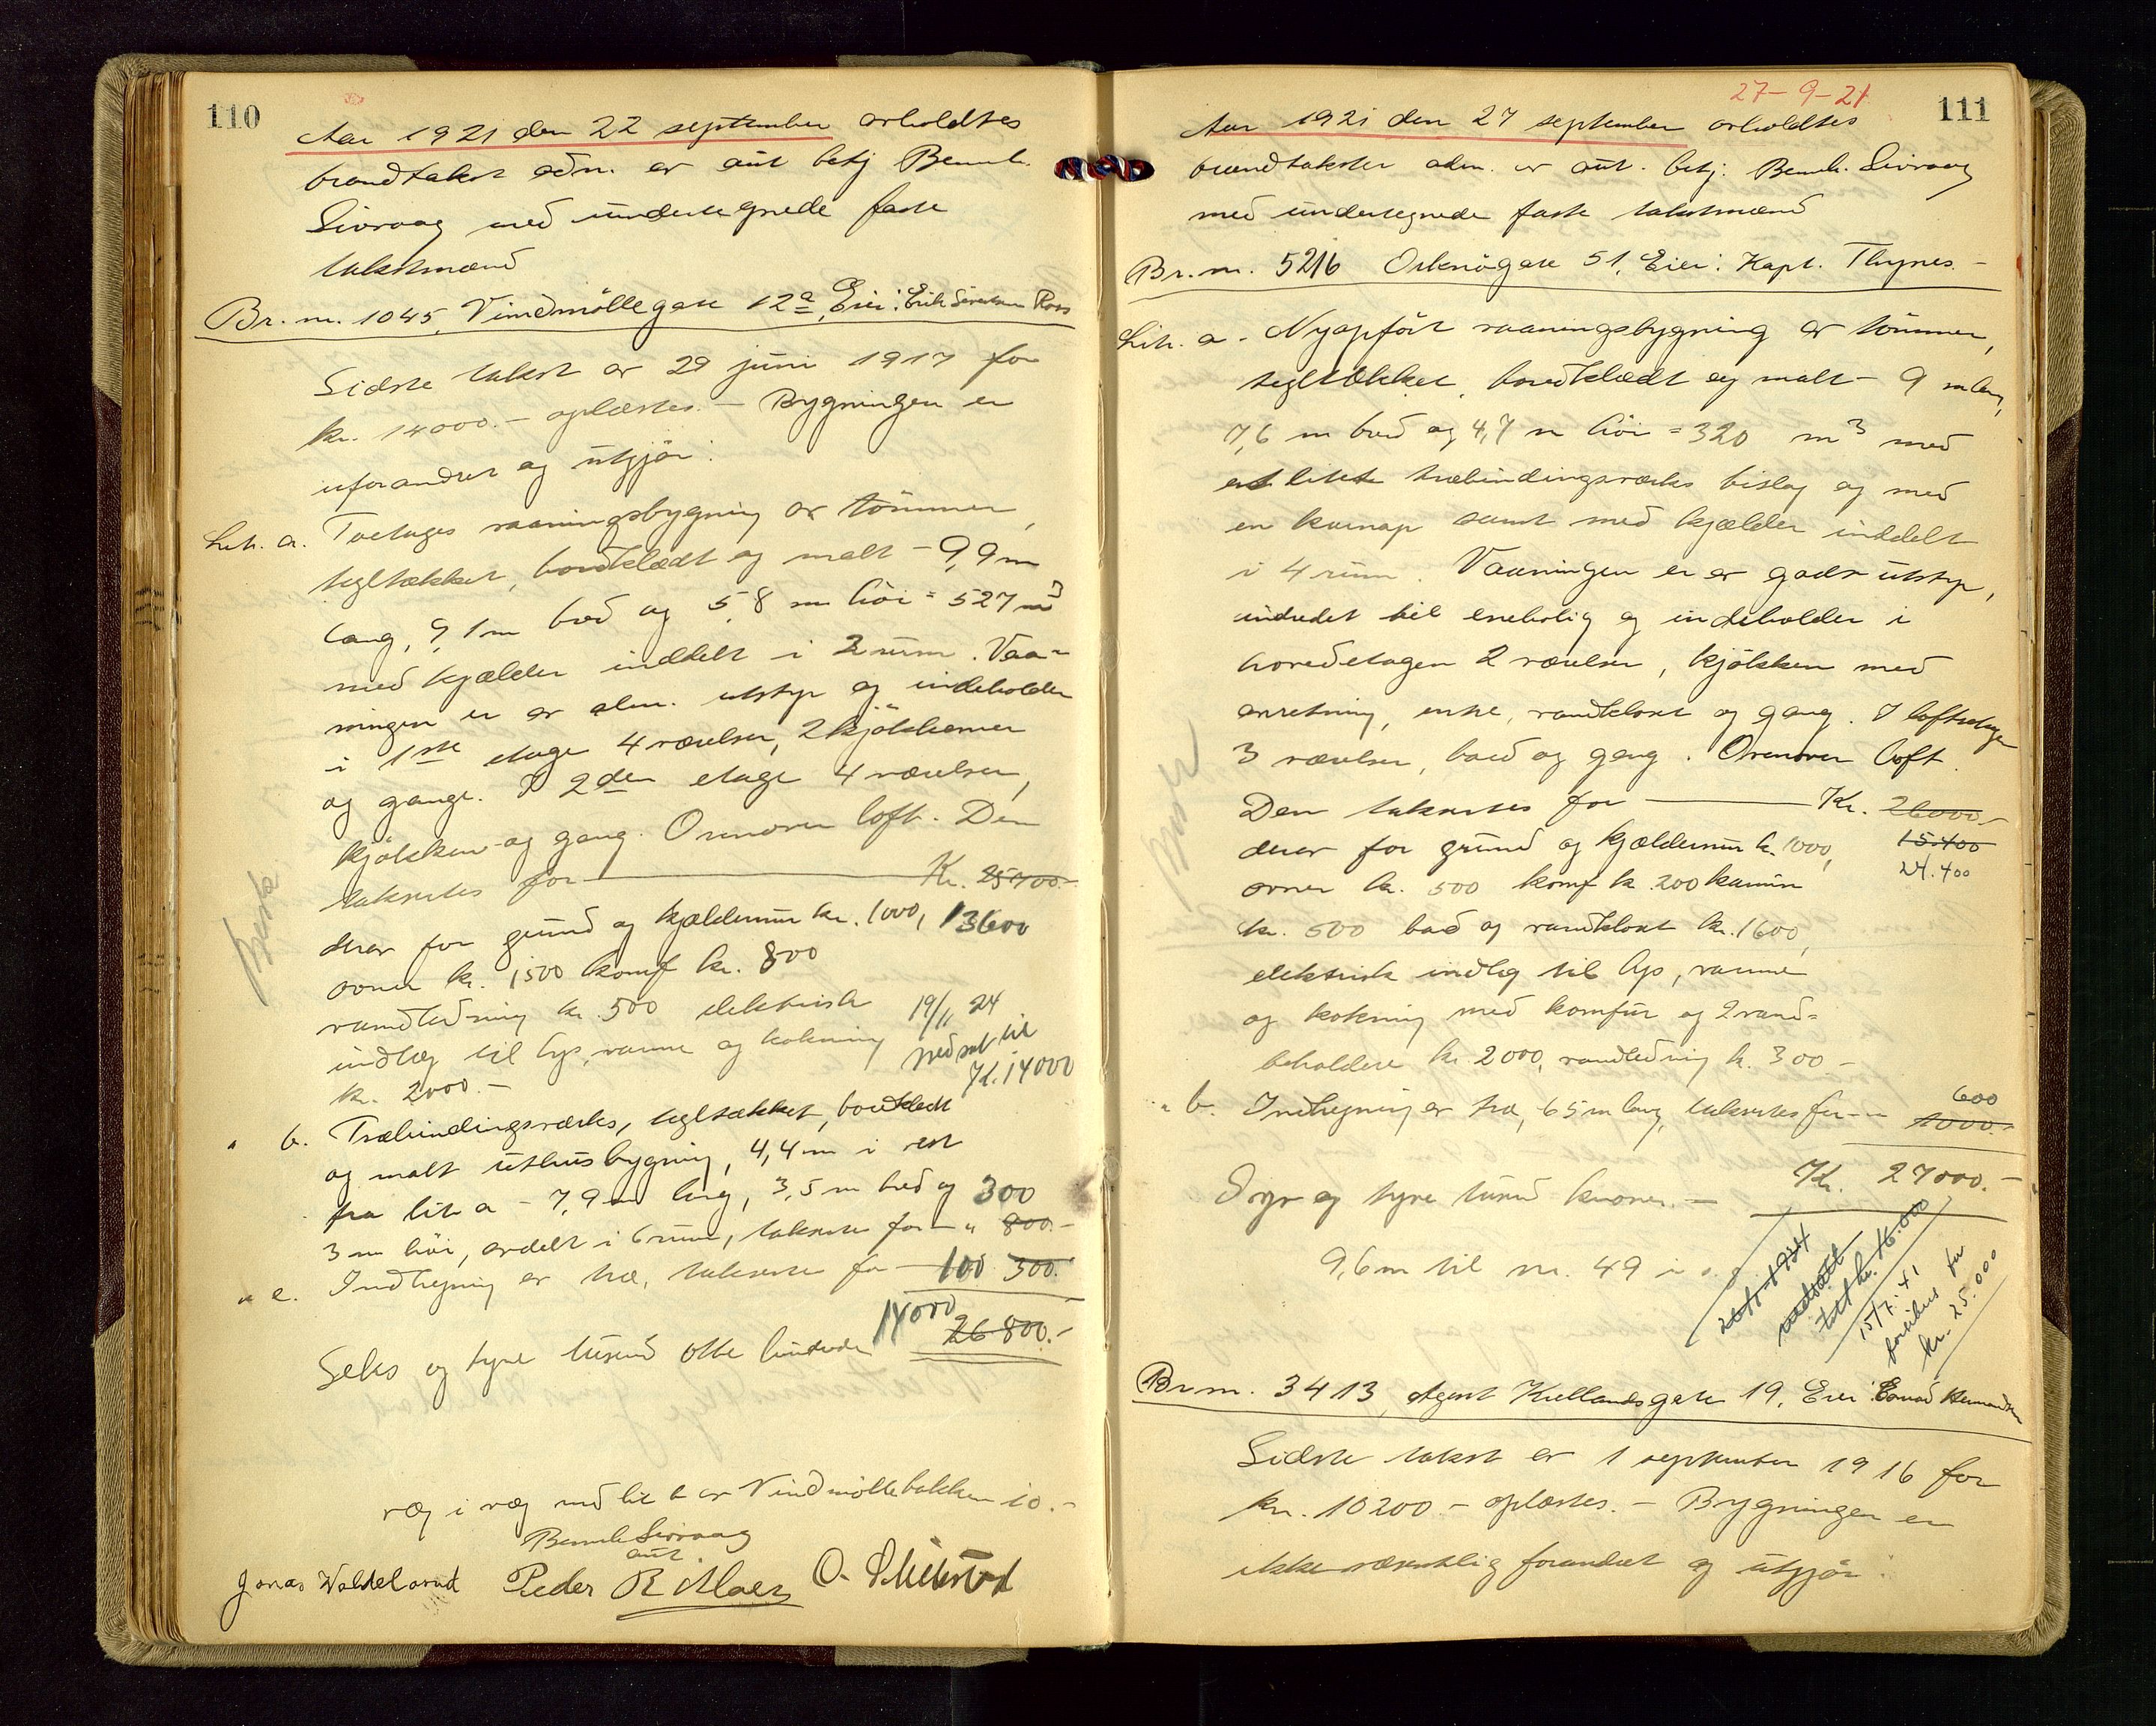 110
Aar 1921 den 22 september avholdtes
brandtakst adm. av aut betj Bernh.
Sivraag med undertegnede faste
takstmænd
Br. nr. 1045, Vindmöllegate 12a, Eier: Erik Ross
Sidste takst av 29 juni 1917 for
kr. 14000.- oplæstes. - Bygningen er
uforandret og utgjör:
Lit. a. Toetages vaaningsbygning av tömmer,
tegltækket, bordklædt og malt - 9,9 m
lang, 9,1 m bred og 5,8 m höi = 527 m3
med kjælder inddelt i 2 rum. Vaa-
ningen er av alm. utstyr og indeholder
i 1ste etage 4 værelser, 2 kjökkener
og gange. I 2den etage 4 værelser,
kjökken og gang. Ovenover loft. Den
taksertes for Kr. 25700.-
derav for grund og kjældermur kr. 1000, 13600
ovner kr. 1500 komf kr. 800
vandledning kr. 500 elektrisk 19/11 24
indlæg til lys, varme og kokning nedsat til
kr. 2000.- Kr. 14000
" b. Træbindingsverks, tegltækket, bordklædt
og malt uthusbygning, 4,4 m i vest
fra lit a - 7,9 m lang, 3,5 m bred og 300
3 m höi, avdelt i 6 rum, taksertes for - " 800.-
" c. Indhegning av træ, taksertes for - 100 300.-
14000
Seks og tyve tusind otte hundrede 26 800.-
væg i væg med lit b av Vindmöllebakken 10.-
Bernh Sivraag
aut.
Jonas Waldeland Peder R Maer O.
27-9-21
111
Aar 1921 den 27 september avholdtes
brandtakster adm. av aut. betj. Bernh. Sivraag
med undertegnede faste takstmænd
Br. nr. 5216 Orknögate 51, Eier: Kapt. Thynes.-
Lit. a - Nyopfört vaaningsbygning av tömmer,
tegltækket, bordklædt og malt - 9 m lang,
7,6 m bred og 4,7 m höi = 320 m3 med
et litet træbindingsverks bislag og med
en karnap samt med kjælder inddelt
i 4 rum. Vaaningen er av godt utstyr,
indredet til enebolig og indeholder i
hovedetagen 2 værelser, kjökken med
anretning, entre, vandklosett og gang. I loftsetagen
3 værelser, bad og gang. Ovenover loft.
Den taksertes for Kr. 26000.-
derav for grund og kjældermur kr. 1000, 15.400
ovner kr. 500 komf kr 200 kamin 24.400
kr. 500 bad og vandklosett kr. 1600,
elektrisk indlæg til lys, varme
og kokning med komfur og 2 vand-
beholdere kr 2000, vandledning kr. 300.-
" b. Indhegning av træ, 65 m lang, taksertes for - " 600
1000.-
Syv og tyve tusind kroner. - Kr. 27000.-
9,6 m til nr. 49 i
26/11-1924
nedsatt
til kr. 16.000
15/7. 41
for
kr. 25.000
Br. nr. 3413, Agent Kiellandsgate 19, Eier:
Sidste takst av 1 september 1916 for
kr. 10200.- oplæstes. - Bygningen er
ikke væsentlig forandret og utgjör: